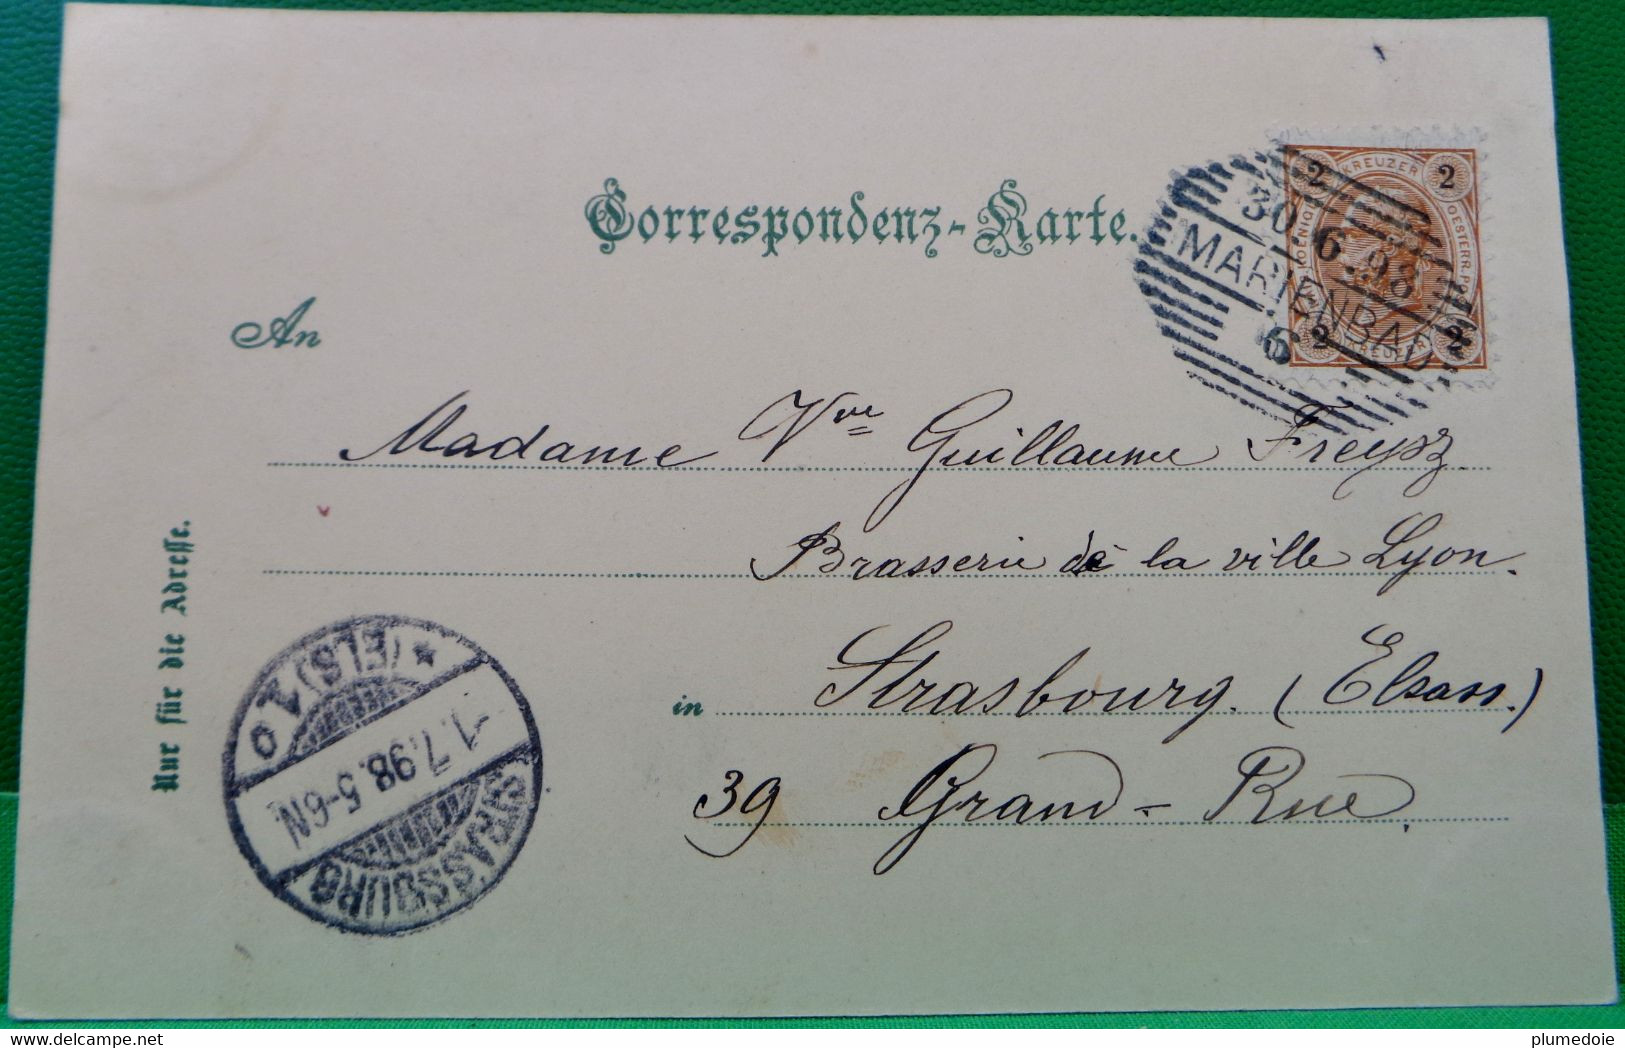 Correspondenz-Karte.
2 KREUZER 2
30.6.98
MARIENBAD
6
2 KREUZER 2
An
Madame Vve Guillaume Freysz
Brasserie de la ville Lyon.
in Strasbourg. (Elsass.)
39 Grand-Rue.
Nur für die Adresse.
STRASSBURG
-1.7.98.5-6N.
(ELS) 1 o
plumedoie